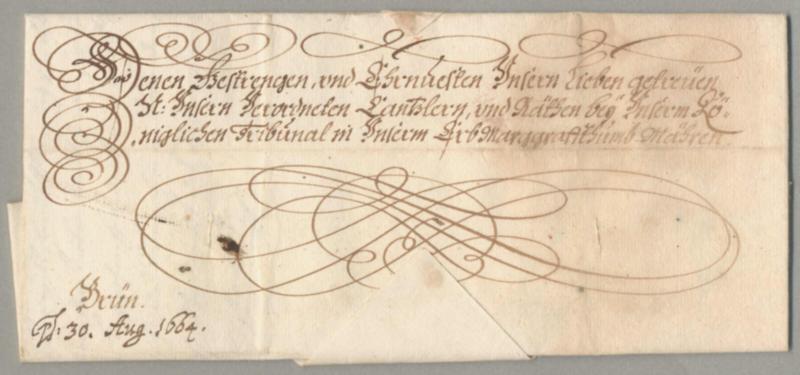 Denen Gestrengen, vnd Ehrnuesten Vnsern Lieben getreüen
N: Vnsern Verordneten Cantzlern, vnd Räthen beÿ Vnserm Kö-
niglichen Tribúnal in Vnserm ErbMarggraffthumb Mähren.
Brün.
30. Aug. 1664.